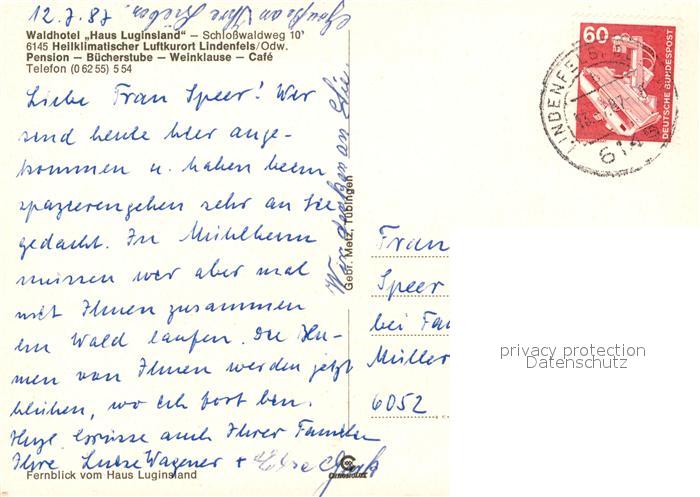 12.7.87
Waldhotel „Haus Luginsland" – Schloßwaldweg 10
6145 Heilklimatischer Luftkurort Lindenfels/Odw.
Pension – Bücherstube – Weinklause – Café
Telefon (0 62 55) 5 54
Liebe Frau Speer! Wir
sind heute hier ange-
kommen u. haben beim
spazierengehen sehr an Sie
gedacht. In Mühlheim
müssen wir aber mal
mit Ihnen zusammen
im Wald laufen. Die Blu-
men von Ihnen werden jetzt
blühen, wo ich fort bin.
Herzl. Grüsse auch Ihrer Familie
Ihre Luise Wagener +
Fernblick vom Haus Luginsland
Wir denken an Sie
Gebr. Metz, Tübingen
60
DEUTSCHE BUNDESPOST
LINDENFELS
6145
Frau
Speer
bei Fa
Müller
6052
privacy protection
Datenschutz